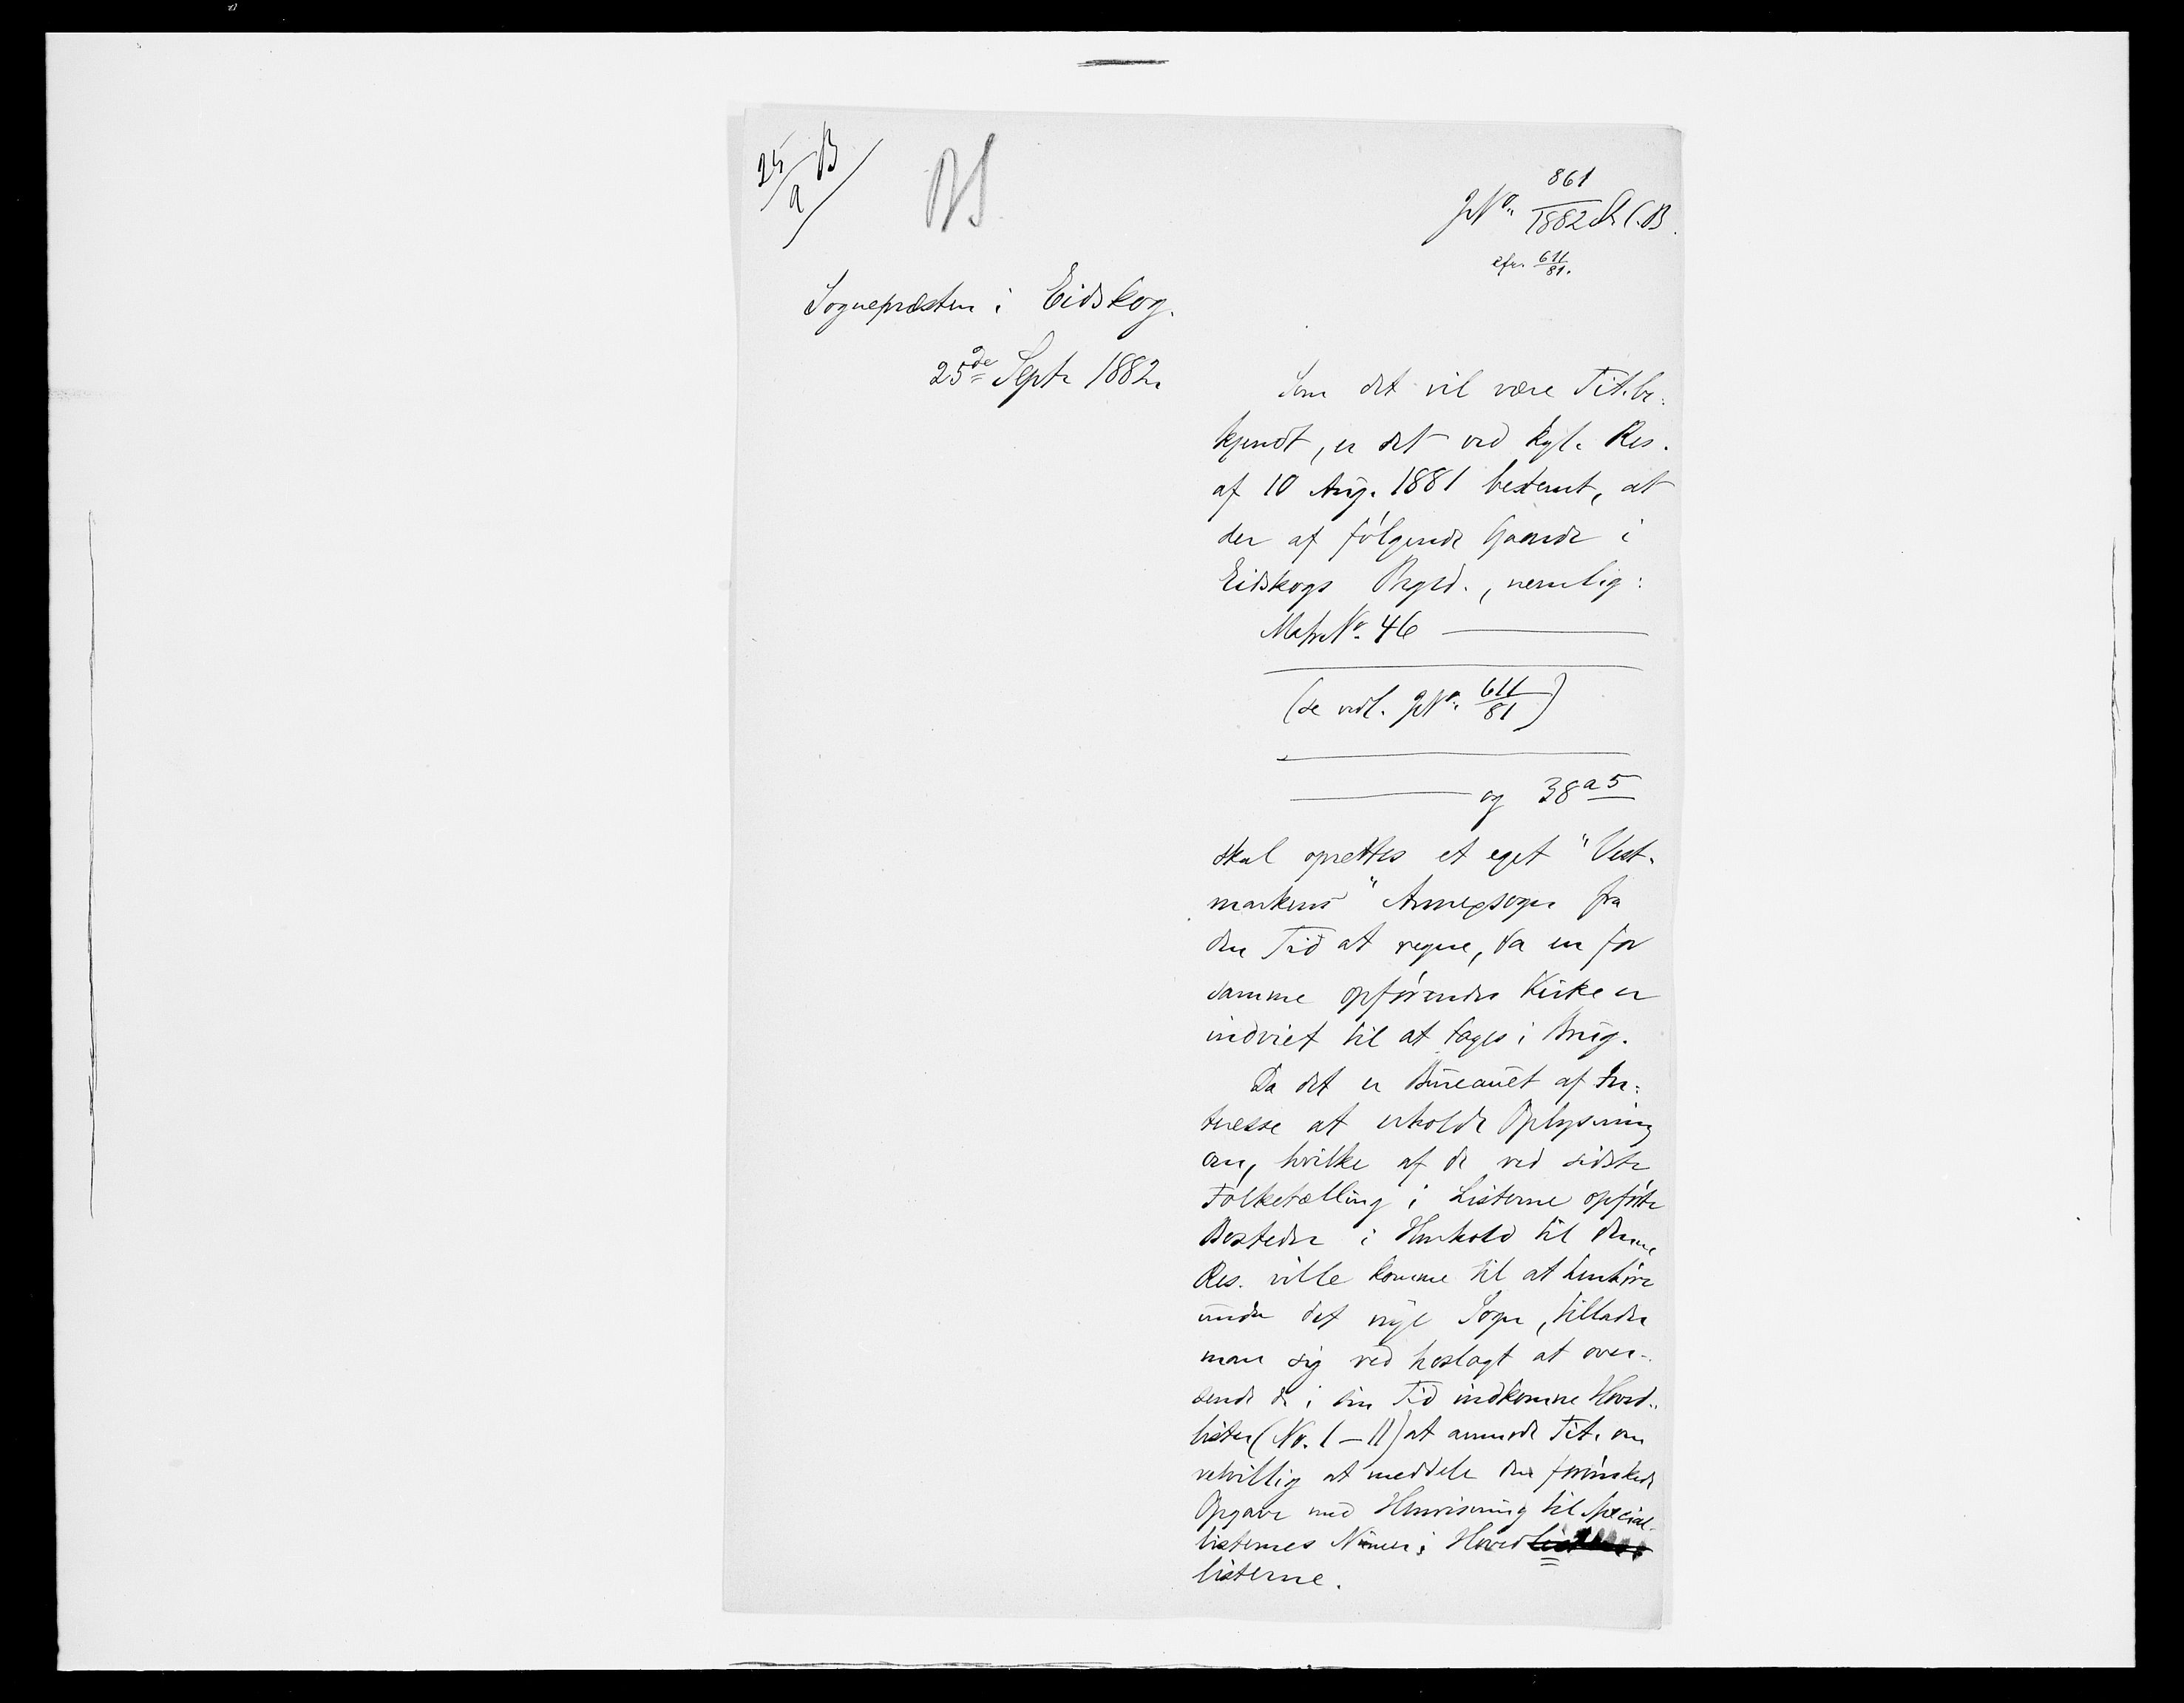 25/9 B
BS
JNo. 861/1882 S.C.B.
cfr. 611/81.
Sognepræsten i Eidskog.
25de Septr 1882.
Som det vil være Tit. be-
kjendt, er det ved kgl. Res.
af 10 Aug. 1881 bestemt, at
der af følgende Gaarde i
Eidskogs Prgjld., nemlig:
Matr. No. 46 ———
(se vedl. JNo. 611/81)
——— og 38 a 5
skal oprettes et eget "Vest-
markens" Annexsogn fra
den Tid at regne, da en for
samme opførendes Kirke er
indviet til at tages i Brug.
Da det er Bureauet af In-
teresse at erholde Oplysning
om, hvilke af de ved sidste
Folketælling i Listerne opførte
Bosteder i Henhold til denne
Res. ville komme til at henhøre
under det nye Sogn, tillader
man sig ved hoslagt at over-
sende de i sin Tid indkomne Hoved-
lister (No. 1–11) at anmode Tit. om
velvillig at meddele den forønskede
Opgave med Henvisning til Special-
listernes Numer i Hoved
listerne.